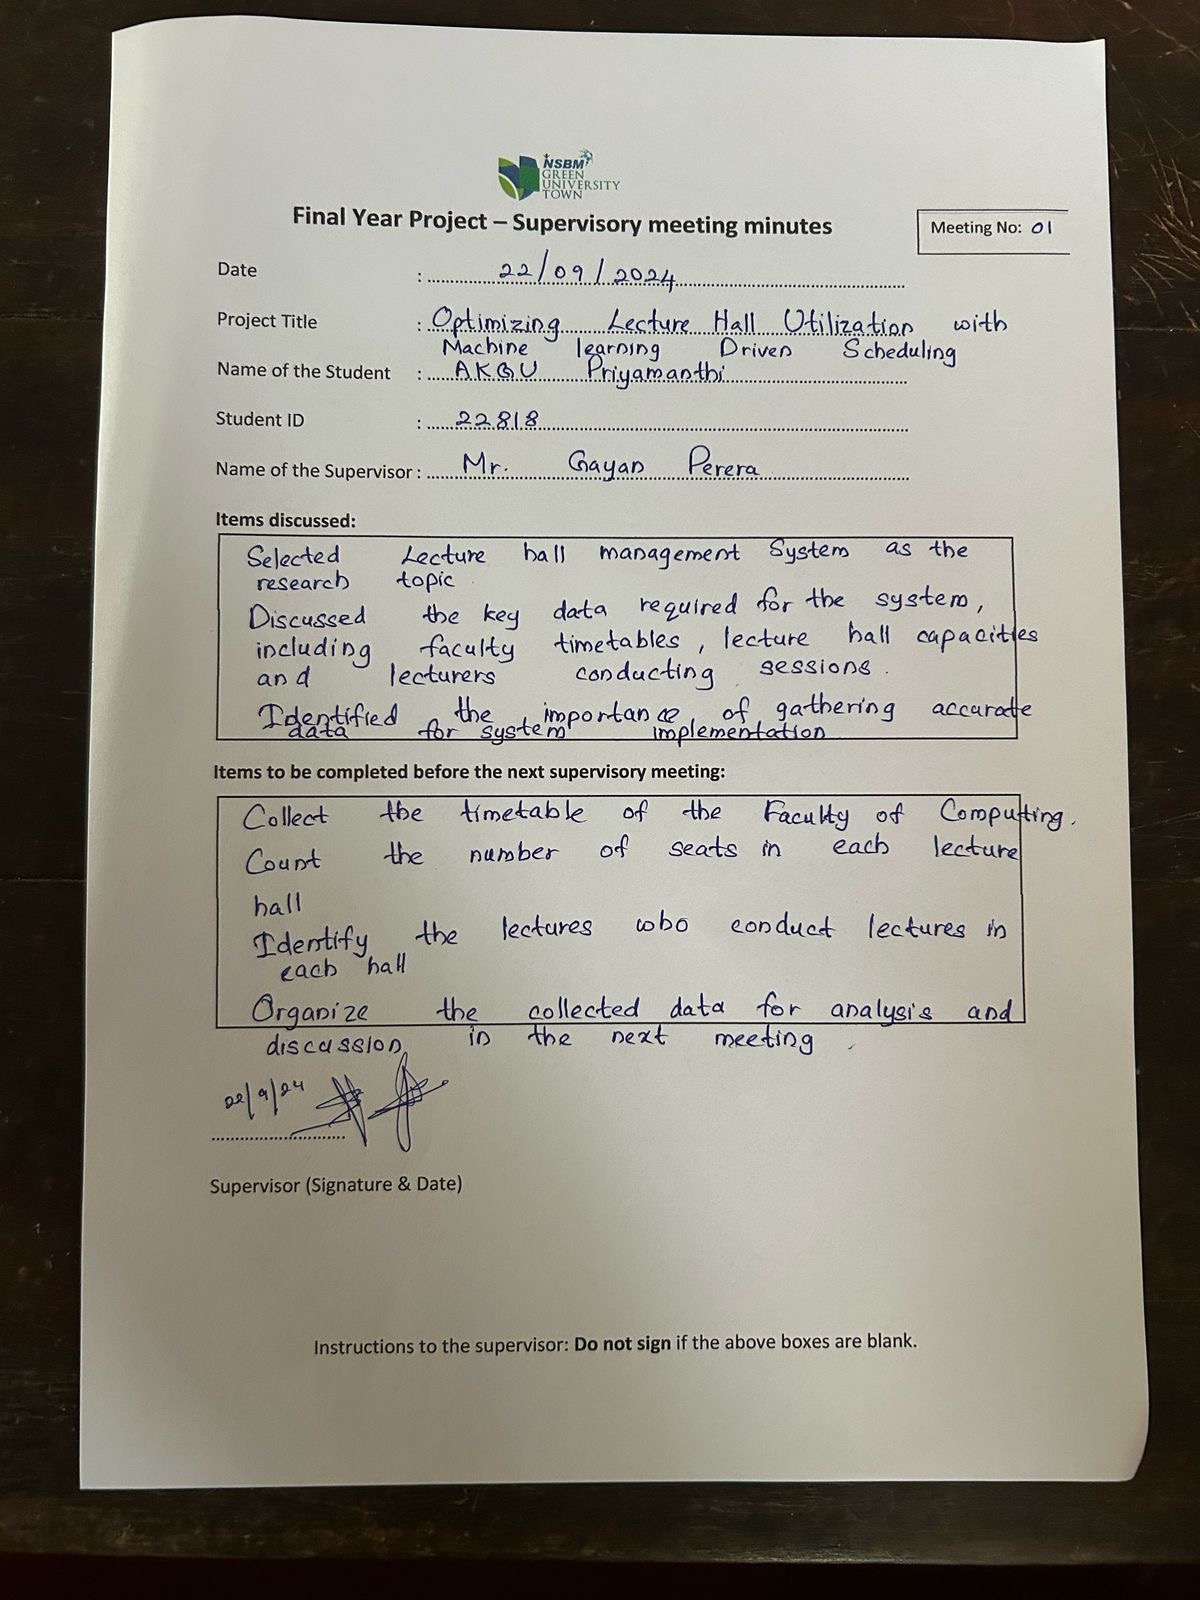 NSBM
GREEN
UNIVERSITY
TOWN
Final Year Project – Supervisory meeting minutes
Meeting No: 01
Date : 22/09/2024
Project Title : Optimizing Lecture Hall Utilization with
Machine learning Driven Scheduling
Name of the Student : AKGU Priyamanthi
Student ID : 22818
Name of the Supervisor : Mr. Gayan Perera
Items discussed:
Selected Lecture hall management System as the
research topic
Discussed the key data required for the system,
including faculty timetables, lecture hall capacities
and lecturers conducting sessions.
Identified the importance of gathering accurate
data for system implementation
Items to be completed before the next supervisory meeting:
Collect the timetable of the Faculty of Computing.
Count the number of seats in each lecture
hall
Identify the lectures who conduct lectures in
each hall
Organize the collected data for analysis and
discussion in the next meeting.
22/9/24
Supervisor (Signature & Date)
Instructions to the supervisor: Do not sign if the above boxes are blank.